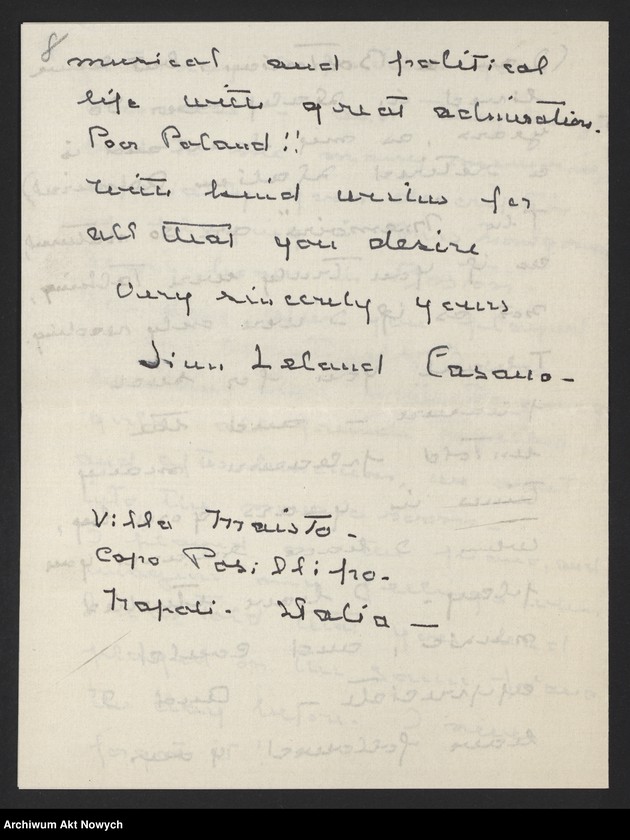 8
musical and political
life with great admiration.
Poor Poland!!
With kind wishes for
all that you desire
Very sincerely yours
Leland Casano -
Villa Maisto -
Capo Posillipo.
Napoli. Italia -
Archiwum Akt Nowych